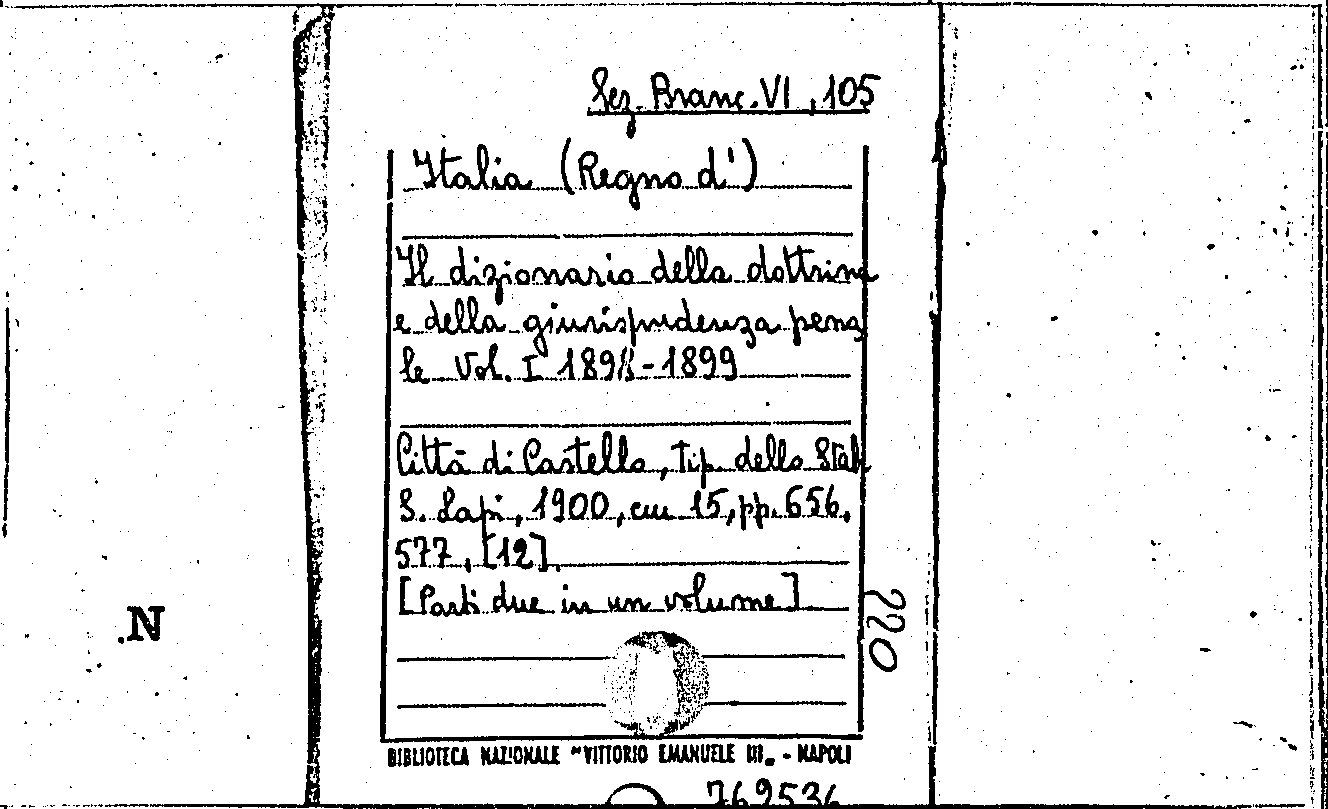 Sez. Branc. VI, 105
Italia (Regno d')
Il dizionario della dottrina
e della giurisprudenza pena
le Vol. I 1898-1899
Città di Castello, tip. dello Stab.
S. Lapi, 1900, cm 15, pp. 656,
577, [12].
[Parti due in un volume]
220
.N
BIBLIOTECA NAZIONALE "VITTORIO EMANUELE III" - NAPOLI
769536